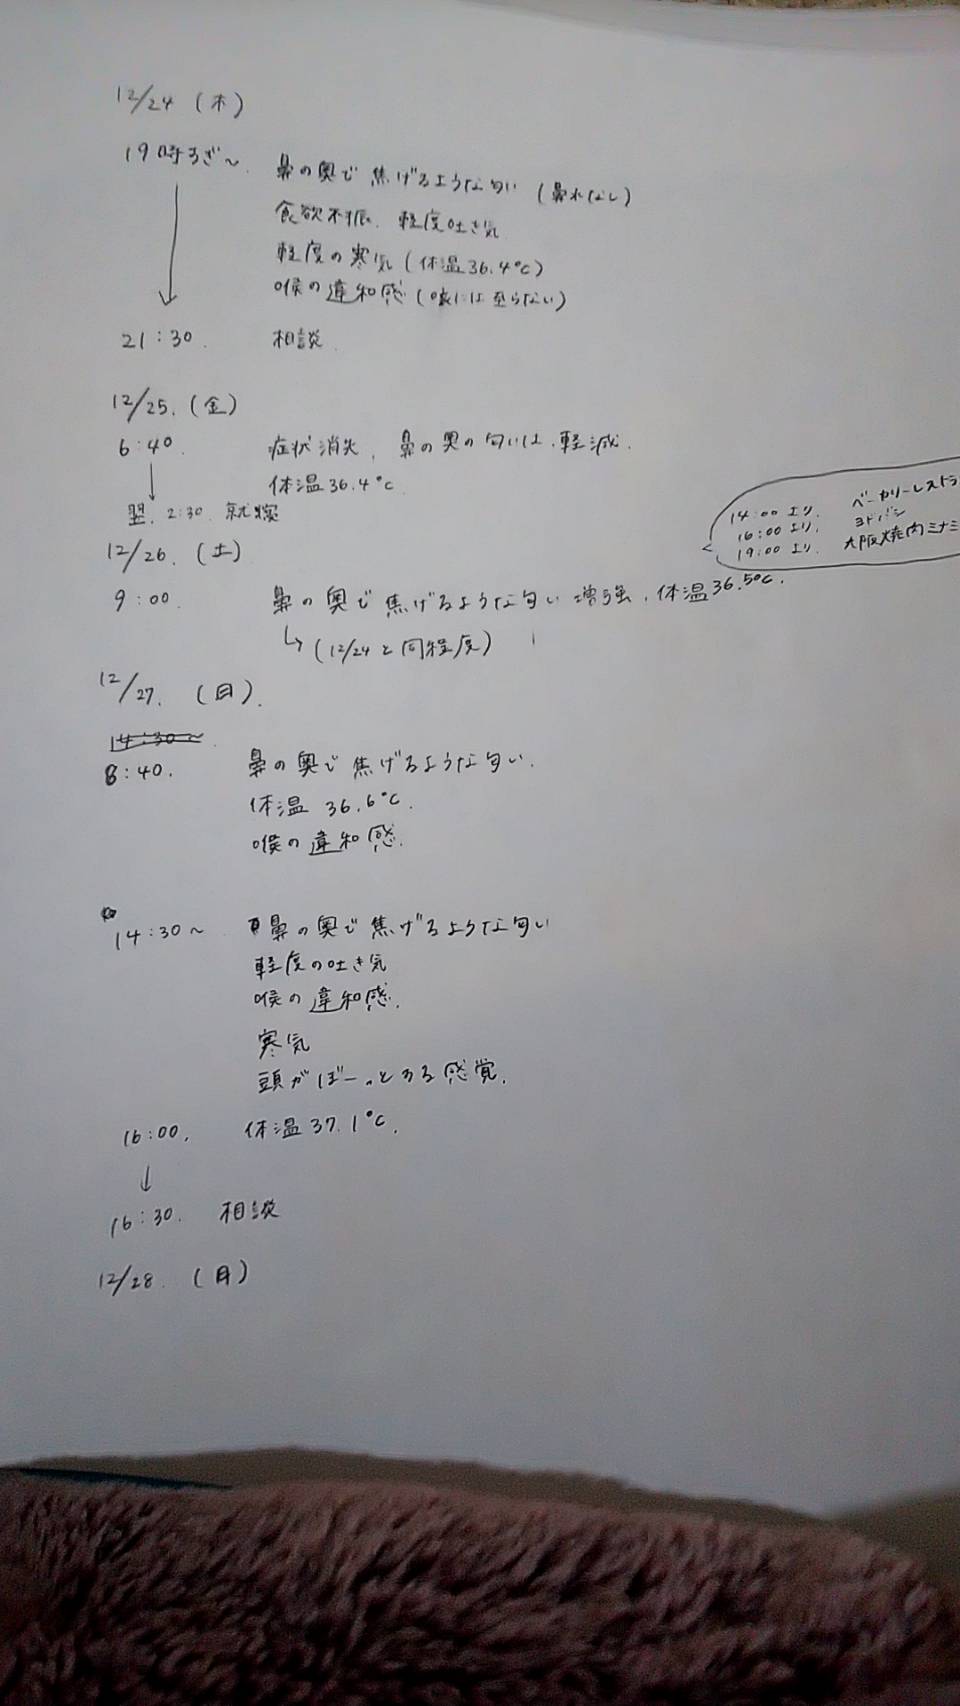 12/24 (木)
19時すぎ〜 鼻の奥で焦げるような匂い (鼻水なし)
食欲不振、軽度吐き気
軽度の寒気 (体温36.4℃)
喉の違和感 (咳には至らない)
21:30. 相談.
12/25. (金)
6:40. 症状消失、鼻の奥の匂いは、軽減.
体温36.4℃
翌. 2:30. 就寝
12/26. (土)
14:00 より. ベーカリーレストラ
16:00 より. ヨドバシ
19:00 より. 大阪焼肉ミナミ
9:00. 鼻の奥で焦げるような匂い増強、体温36.5℃.
(12/24と同程度)
12/27. (日).
14:30〜
8:40. 鼻の奥で焦げるような匂い.
体温 36.6℃.
喉の違和感.
14:30〜 鼻の奥で焦げるような匂い
軽度の吐き気
喉の違和感.
寒気
頭がぼーっとする感覚.
16:00. 体温37.1℃.
16:30. 相談
12/28. (月)